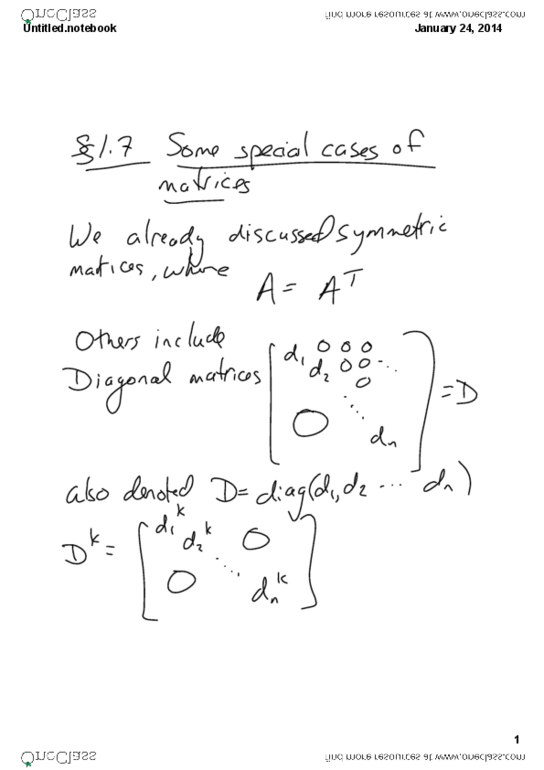 OneClass
find more resources at www.oneclass.com
Untitled.notebook
January 24, 2014
§1.7 Some special cases of
matrices
We already discussed symmetric
matices, where
A = A^T
Others include
Diagonal matrices
[d₁ 0 0 0
d₂ 0 0 ...
0
⋱
0 dₙ] = D
also denoted D = diag(d₁, d₂ ... dₙ)
D^k = [d₁^k
d₂^k 0
⋱
0 dₙ^k]
1
OneClass
find more resources at www.oneclass.com